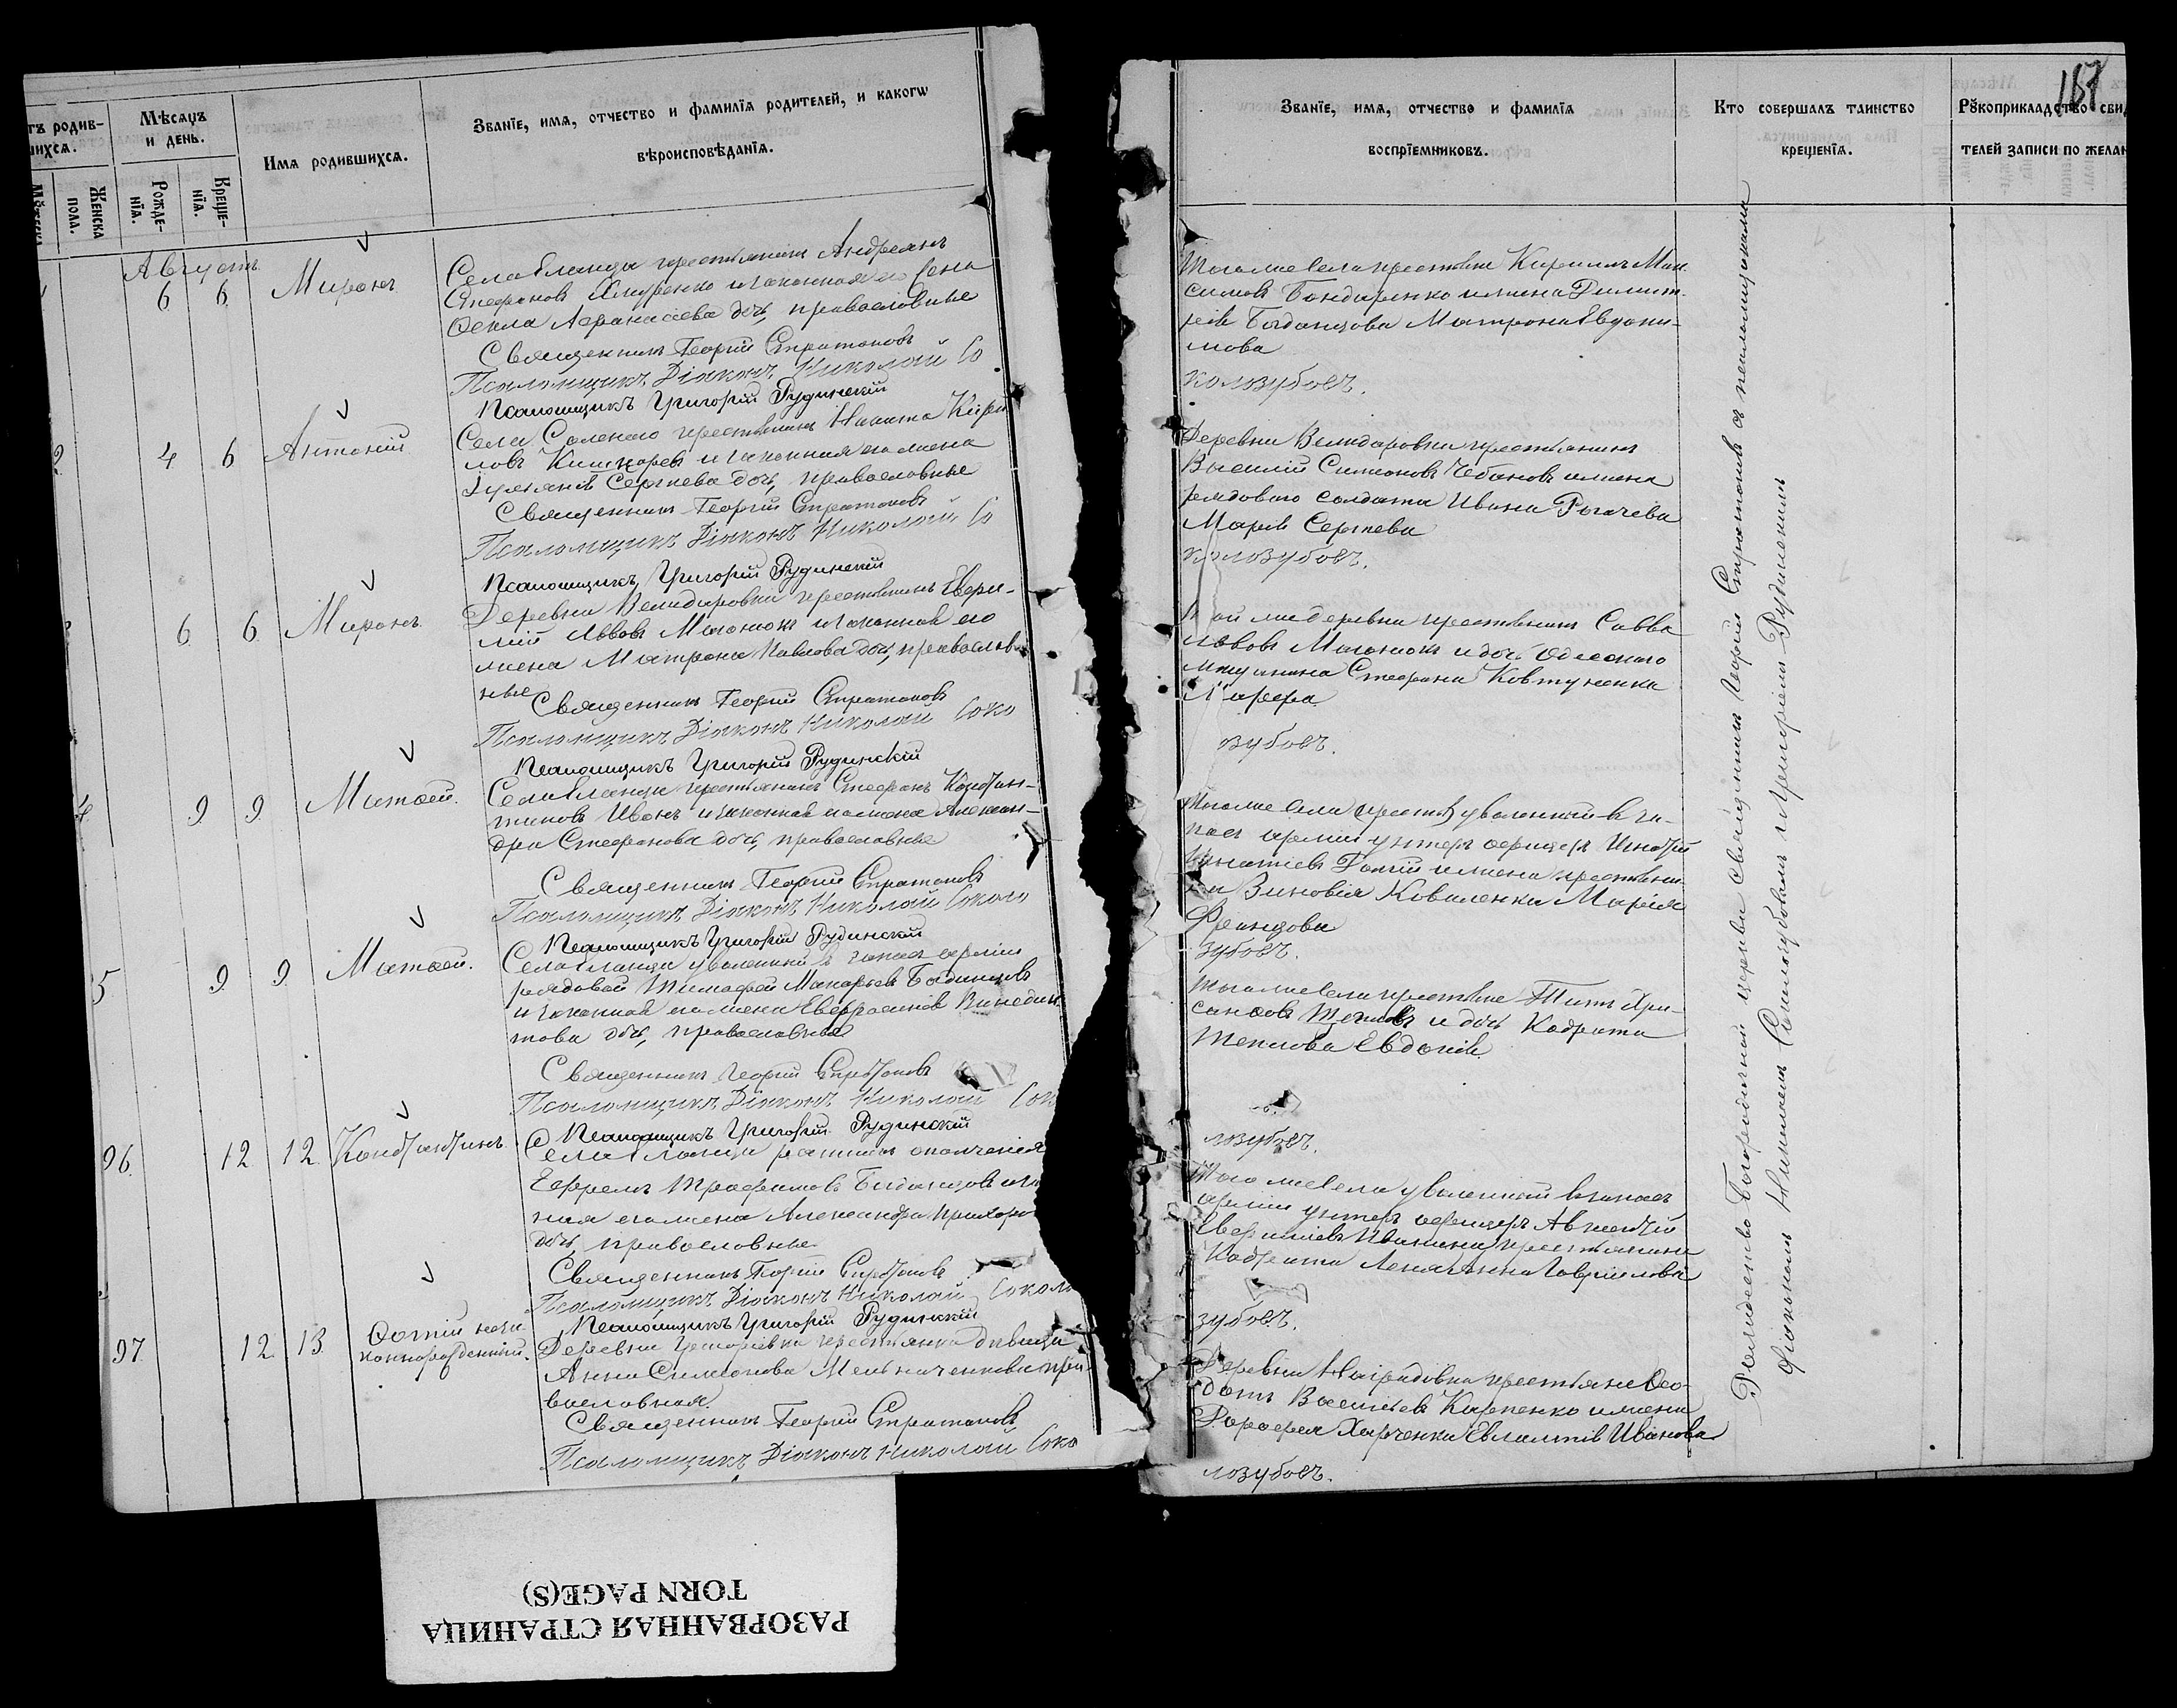 тъ родив-
шихся.
Мѣсяцъ
и день.
Имя родившихся.
Званіе, имя, отчество и фамилія родителей, и какого
вѣроисповѣданія.
Женска
пола.
Рожде-
нія.
Креще-
нія.
Августъ
6 6 Миронъ
Села Еланца крестьянинъ Андреянъ
Стефановъ и законная его жена
Ѳекла Афанасіева дочь, православные
Священникъ Георгій Стратоновъ
Псаломщикъ Діаконъ Николай Со
Псаломщикъ Григорій Рудинскій
2 4 6 Антоній
Села Соленаго крестьянинъ Никита Кири
ловъ и законная его жена
Іуліанія Сергѣева дочь, православные
Священникъ Георгій Стратоновъ
Псаломщикъ Діаконъ Николай Со
Псаломщикъ Григорій Рудинскій
6 6 Миронъ
Деревни Велидаровки крестьянинъ
Львовъ и законная его
жена Матрона Павлова дочь, православ
ные
Священникъ Георгій Стратоновъ
Псаломщикъ Діаконъ Николай Соко
Псаломщикъ Григорій Рудинскій
4 9 9 Матѳей.
Села Еланца крестьянинъ Стефанъ Констан-
тиновъ Иванъ и законная его жена Алексан-
дра Стефанова дочь, православные
Священникъ Георгій Стратоновъ
Псаломщикъ Діаконъ Николай Соколо
Псаломщикъ Григорій Рудинскій
5 9 9 Матѳей.
Села Еланца уволенный въ запасъ арміи
рядовой Тимофей Макарьевъ Богданцовъ
и законная его жена Евфросинія Венедик
това дочь, православные
Священникъ Георгій Стратоновъ
Псаломщикъ Діаконъ Николай Сок
Псаломщикъ Григорій Рудинскій
96. 12 12 Константинъ
Села Еланца ратникъ ополченія
Ефремъ Трофимовъ Богданцовъ и
ная его жена Александра
дочь, православные
Священникъ Георгій Стратоновъ
Псаломщикъ Діаконъ Николай Соколо
Псаломщикъ Григорій Рудинскій
97. 12 13 Фотій неза
коннорожденный.
Деревни Григоріевки крестьянка дѣвица
Анна Симеонова Мельниченкова пра-
вославная.
Священникъ Георгій Стратоновъ
Псаломщикъ Діаконъ Николай Соко
Званіе, имя, отчество и фамилія
воспріемниковъ.
Кто совершалъ таинство
крещенія.
Рукоприкладство свид
телей записи по желан
167
Того же села крестьяне Кириллъ Мак-
симовъ Бондаренко и жена Димит-
рія Богданцова Матрона Евдоки-
мова
колозубовъ.
Деревни Велидаровки крестьянинъ
Василій Симеоновъ Чебановъ и жена
рядового солдата Ивана Рогачева
Марія Сергѣева
колозубовъ.
Той же деревни крестьянинъ Савва
Львовъ и дочь Одесскаго
мѣщанина Стефана Ковтуненка
Марфа
зубовъ.
Того же села крестьян. уволенный въ за-
пасъ арміи унтеръ офицеръ Игнатій
Игнатіевъ и жена крестьяни-
на Зиновія Коваленка Марія
зубовъ.
Того же села крестьяне Титъ Хри-
санѳовъ Тепловъ и дочь Кодрата
Теплова Евдокія.
лозубовъ.
Того же села уволенный въ запасъ
арміи унтеръ офицеръ Авксентій
крестьянина
Кодрата Анна Гавріилова
зубовъ.
Деревни крестьяне Ѳео-
дотъ Васильевъ Карпенко и жена
Дорофея Харченка Евлампія Иванова
лозубовъ.
Рождество Богородичной церкви Священникъ Георгій Стратоновъ съ псаломщиками
Діакономъ Николаемъ Соколозубовымъ и Григоріемъ Рудинскимъ
РАЗОРВАННАЯ СТРАНИЦА
TORN PAGE(S)